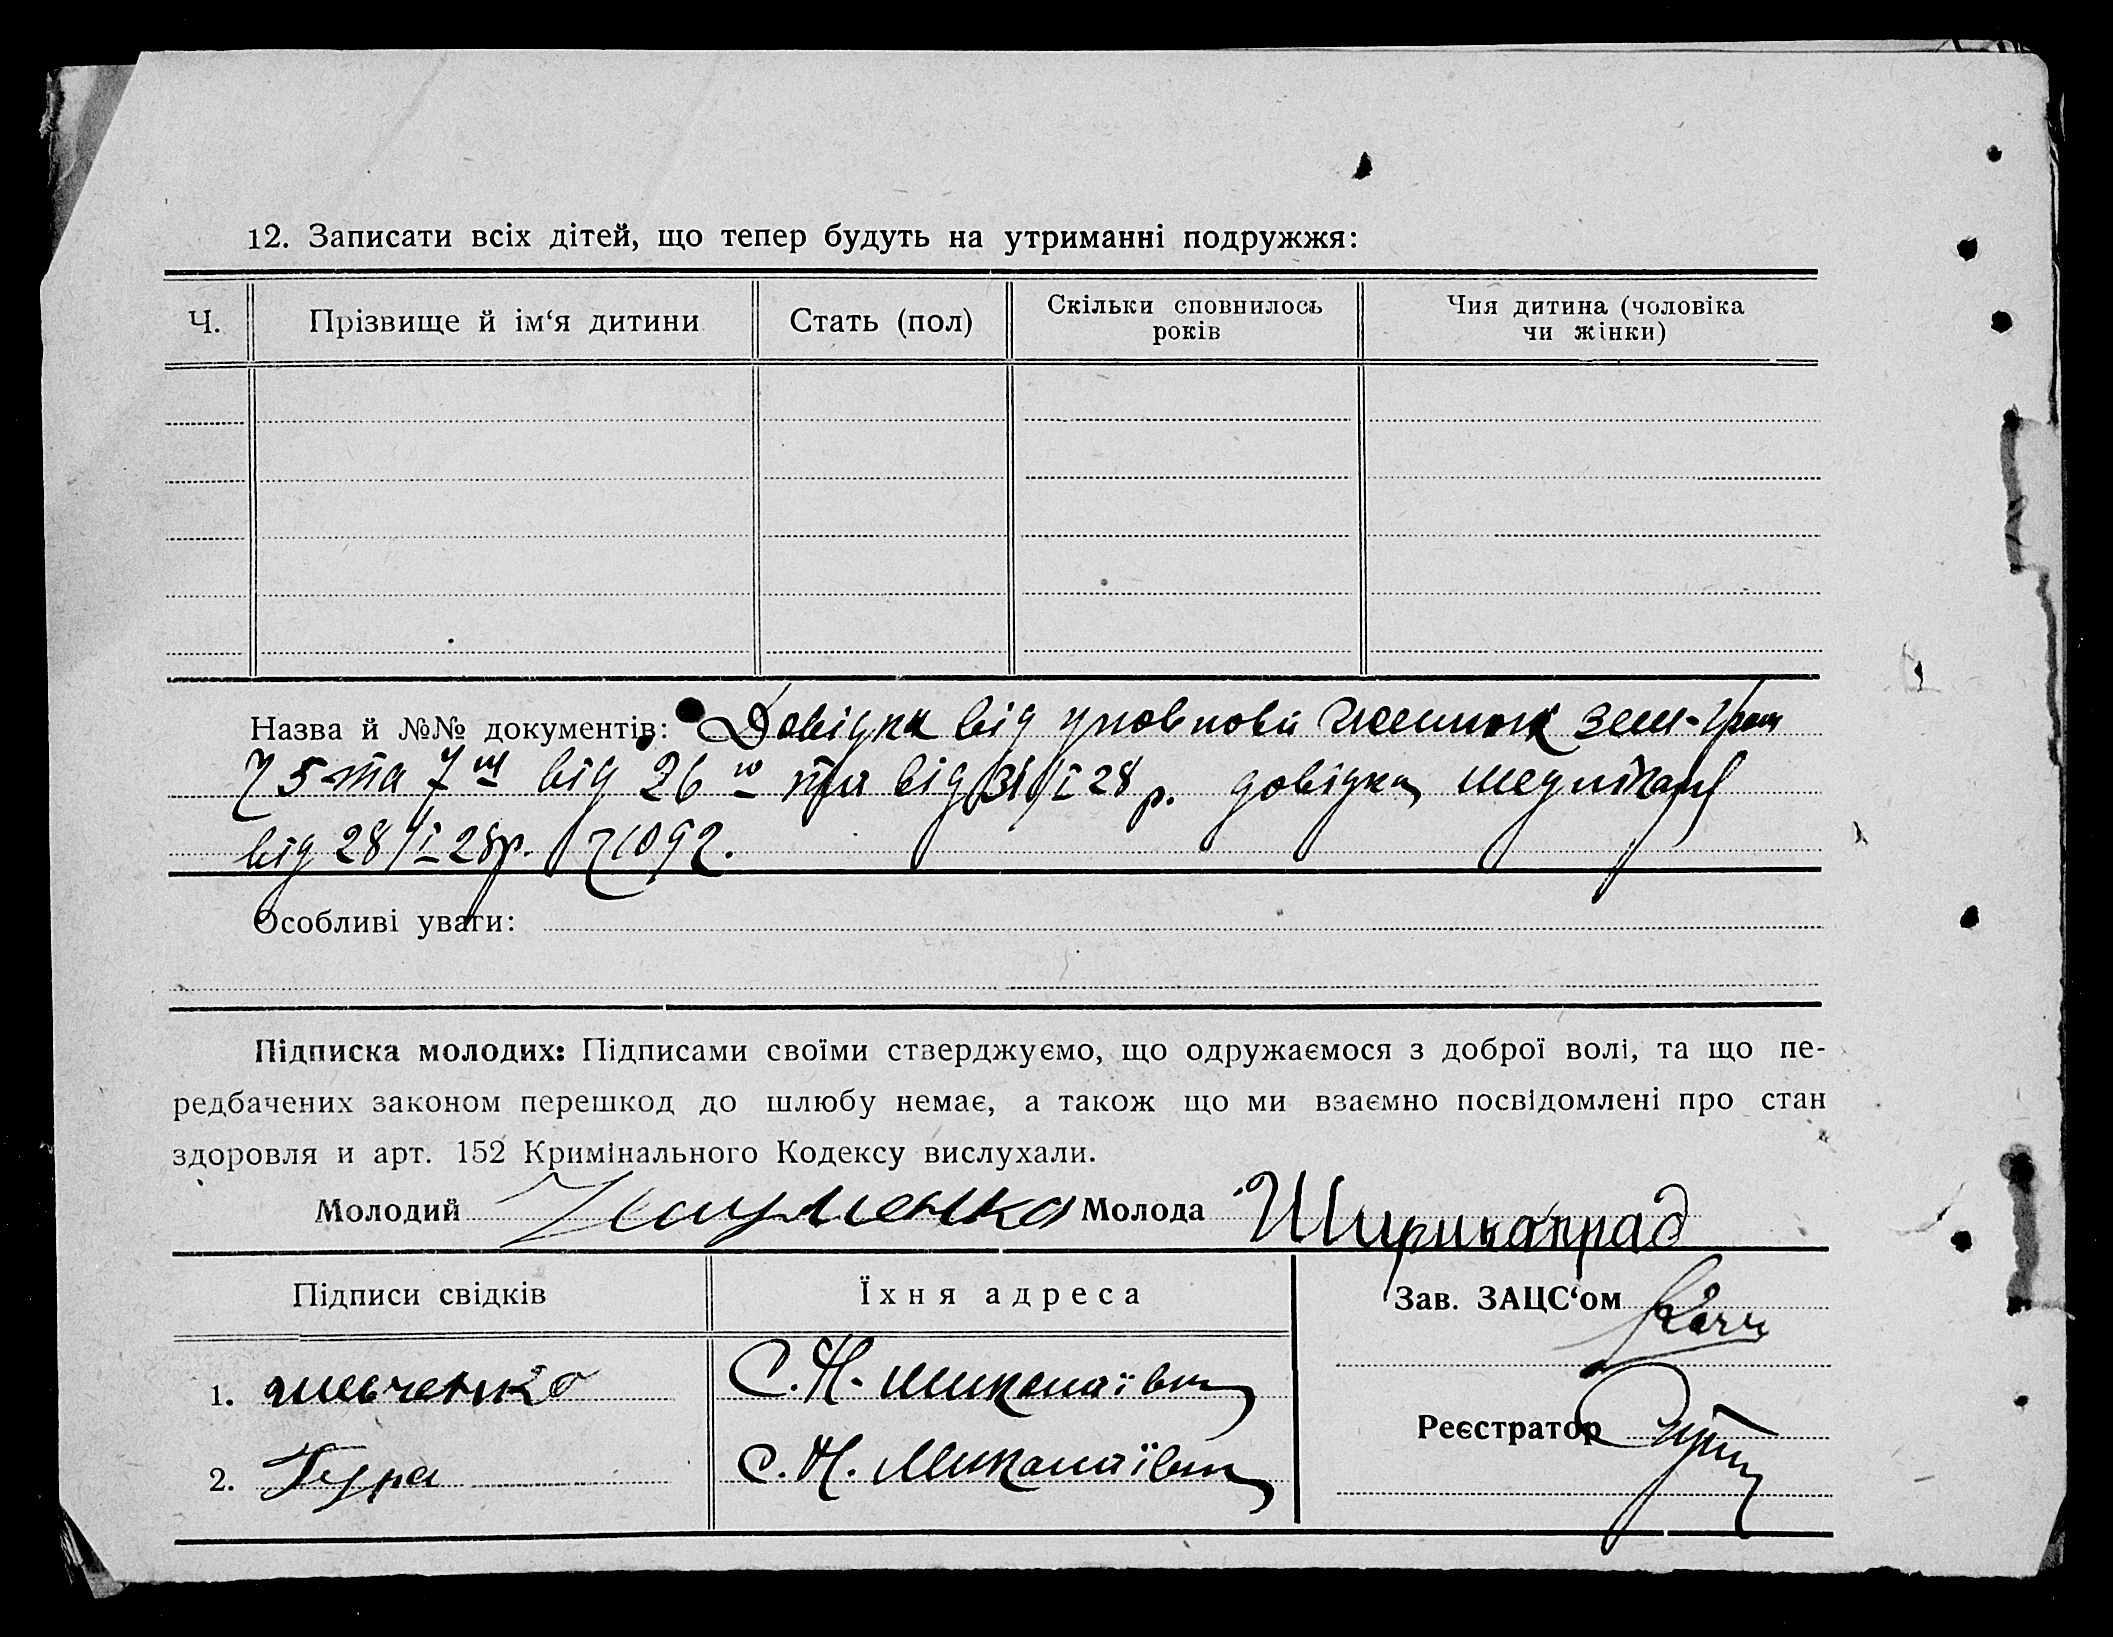 12. Записати всіх дітей, що тепер будуть на утриманні подружжя:
Ч. Прізвище й ім‘я дитини Стать (пол) Скільки сповнилось років Чия дитина (чоловіка чи жінки)
Назва й №№ документів: Довідка від уповнов зем-гром
75 та 7 від 26 та від 31/I 28 р. довідка медлікаря
від 28/I 28р. 1092.
Особливі уваги:
Підписка молодих: Підписами своїми стверджуємо, що одружаємося з доброї волі, та що пе-
редбачених законом перешкод до шлюбу немає, а також що ми взаємно посвідомлені про стан
здоровля и арт. 152 Кримінального Кодексу вислухали.
Молодий Науменко Молода
Підписи свідків Їхня адреса Зав. ЗАЦС‘ом
1. шевченко С. Н. Миколаївка
Реєстратор
2. Гура С. Н. Миколаївка